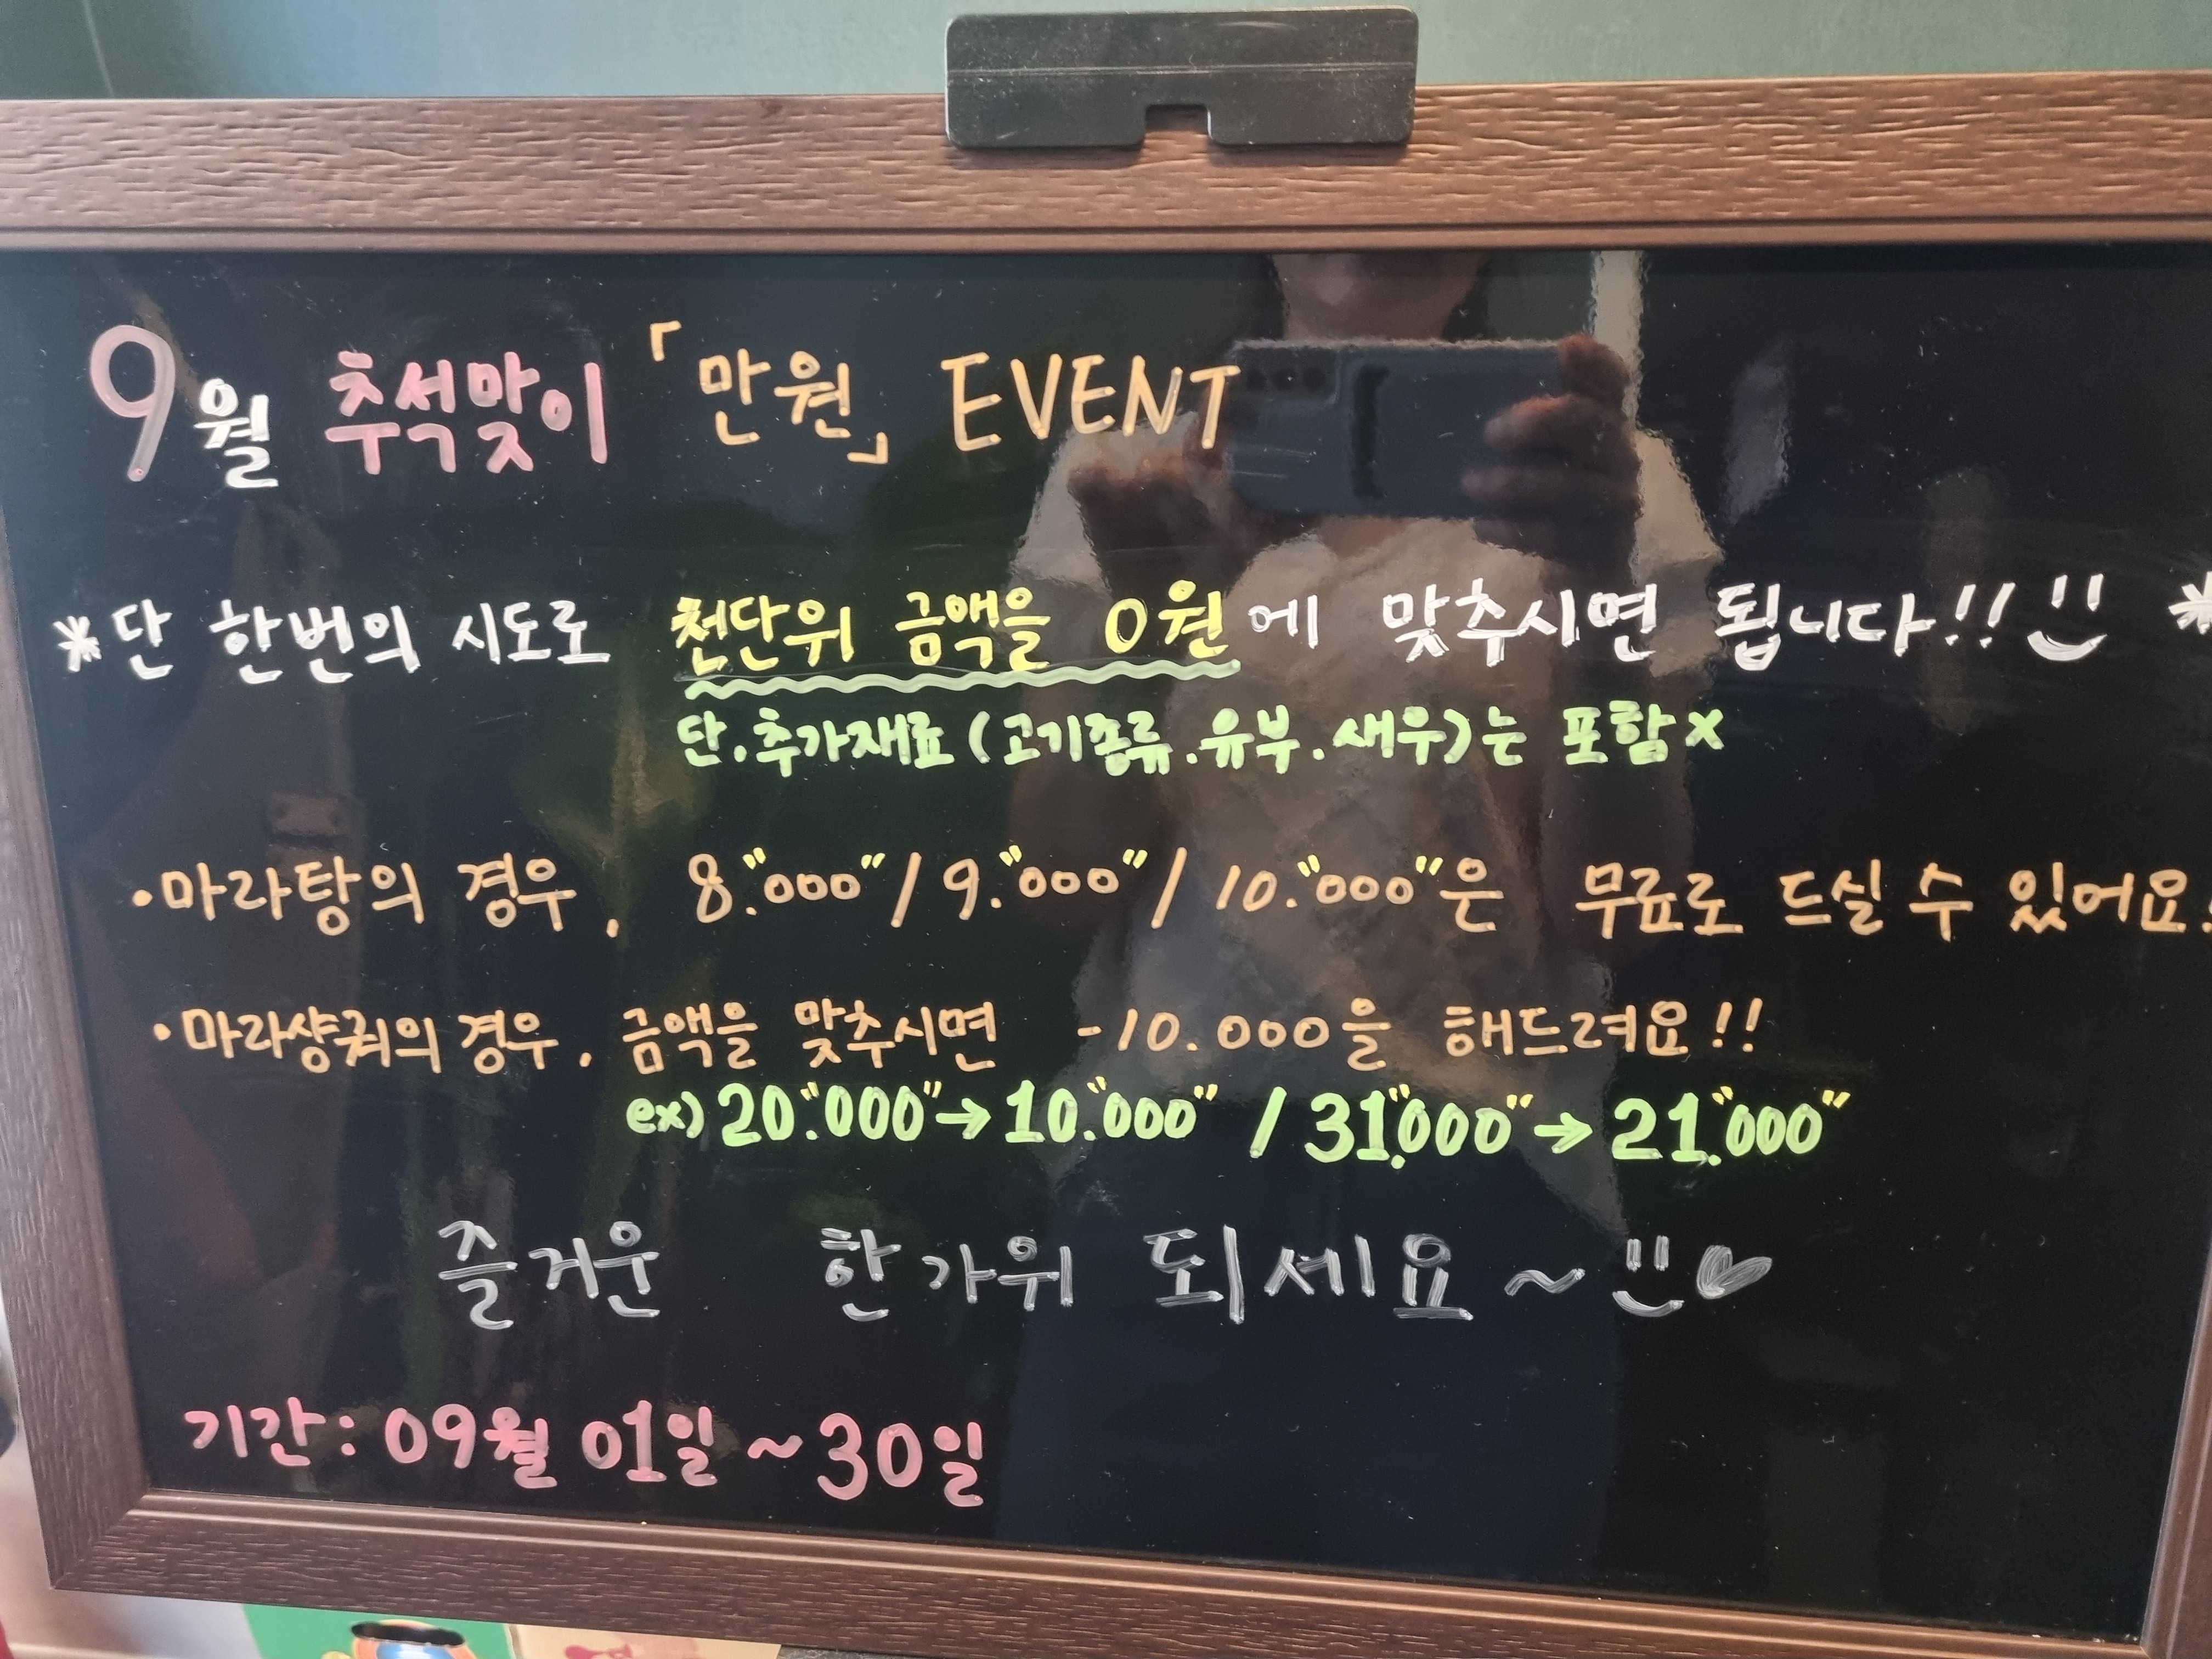 9월 추석맞이 「만원」 EVENT
*단 한번의 시도로 천단위 금액을 0원에 맞추시면 됩니다!! *
단.추가재료(고기종류.유부.새우)는 포함x
·마라탕의 경우, 8."000"/9."000"/10."000"은 무료로 드실 수 있어요.
·마라샹궈의 경우, 금액을 맞추시면 -10.000을 해드려요!!
ex) 20."000"→10."000" / 31."000"→21."000"
즐거운 한가위 되세요~
기간: 09월 01일~30일